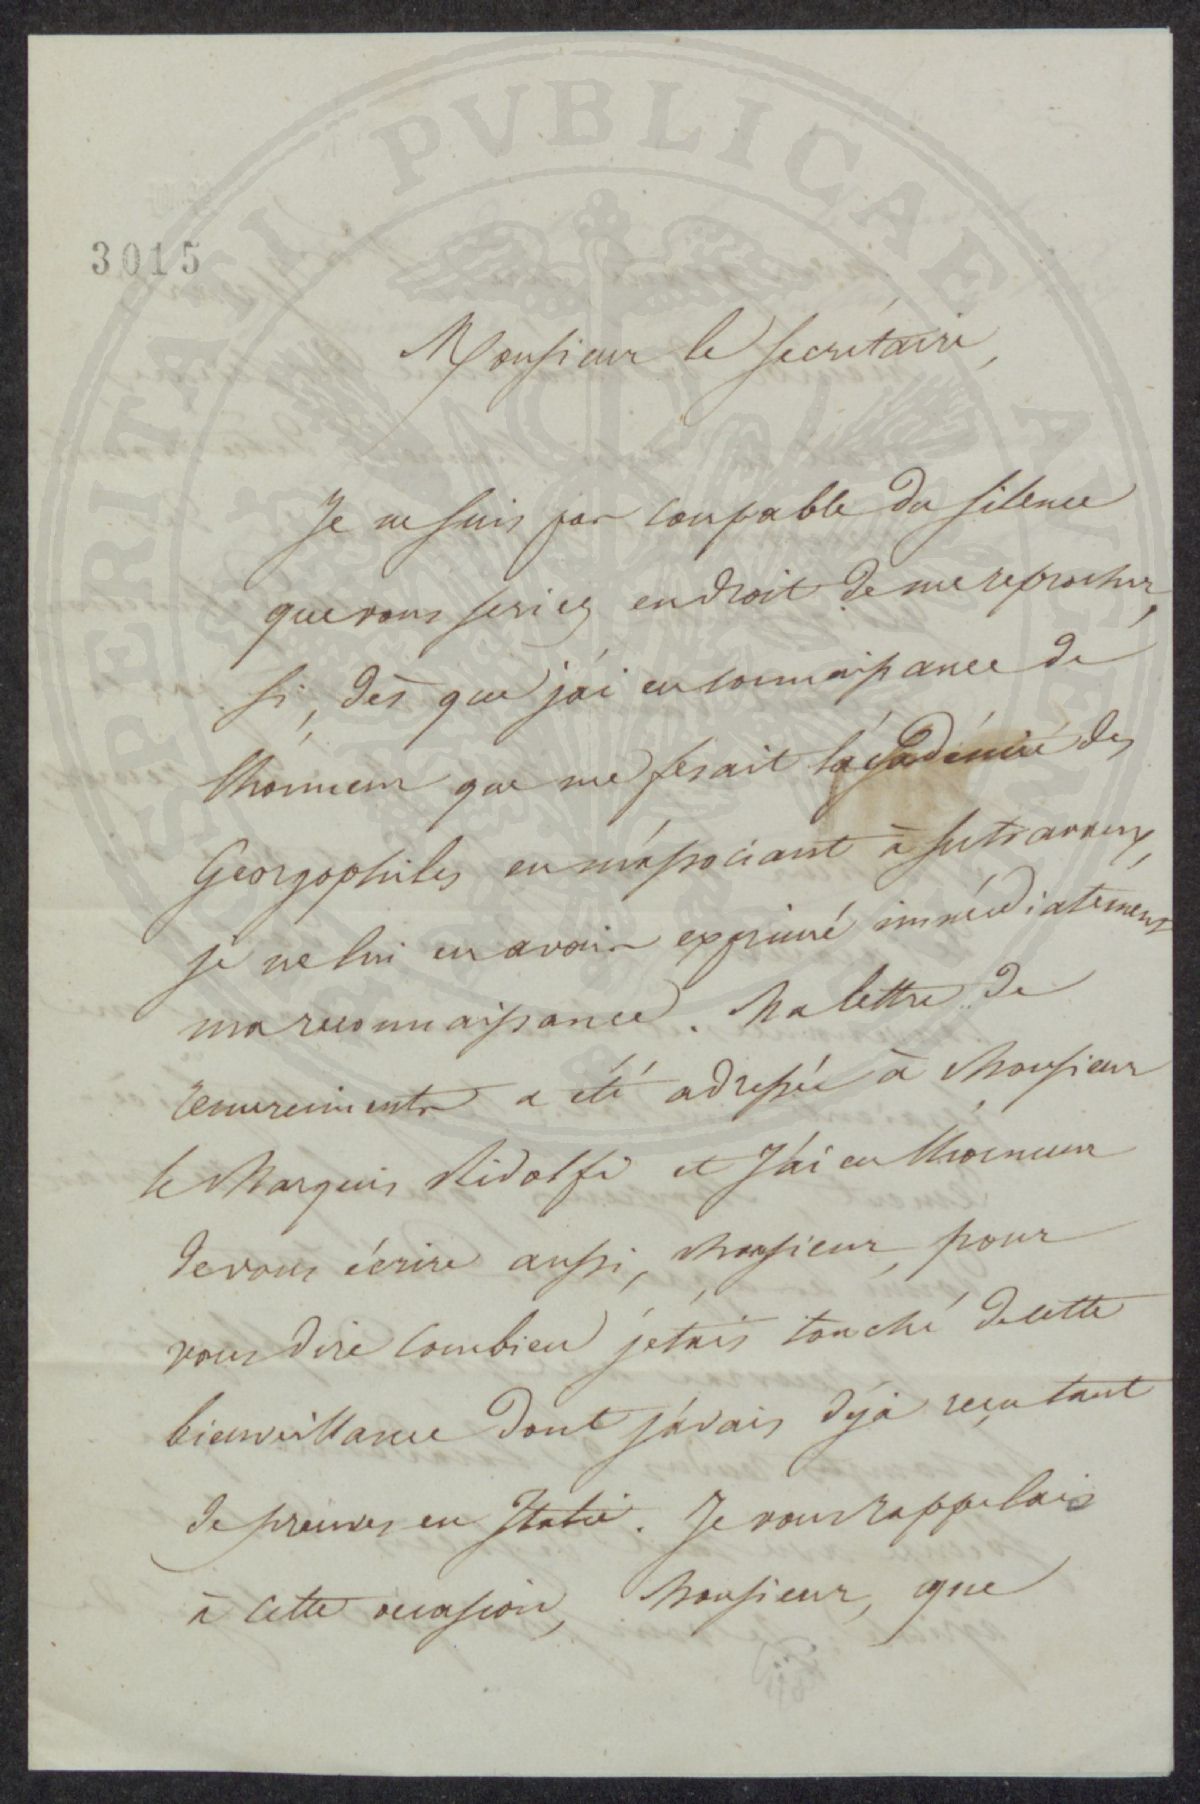 PROSPERITATI PVBLICAE AVGENDAE
3015
Monsieur le secrétaire,
Je ne suis pas coupable du silence
que vous seriez en droit de me reprocher,
si, dès que j'ai eu connaissance de
l'honneur que me fesait l'académie des
Georgophiles en m'associant à ses travaux,
je ne lui en avais exprimé immédiatement
ma reconnaissance. Ma lettre de
remerciments a été adressée à Monsieur
le Marquis Ridolfi et J'ai eu l'honneur
de vous écrire aussi, Monsieur, pour
vous dire combien j'etais touché de cette
bienveillance dont j'avais déjà reçu tant
de preuves en Italie. Je vous rappelais
à cette occasion, Monsieur, que